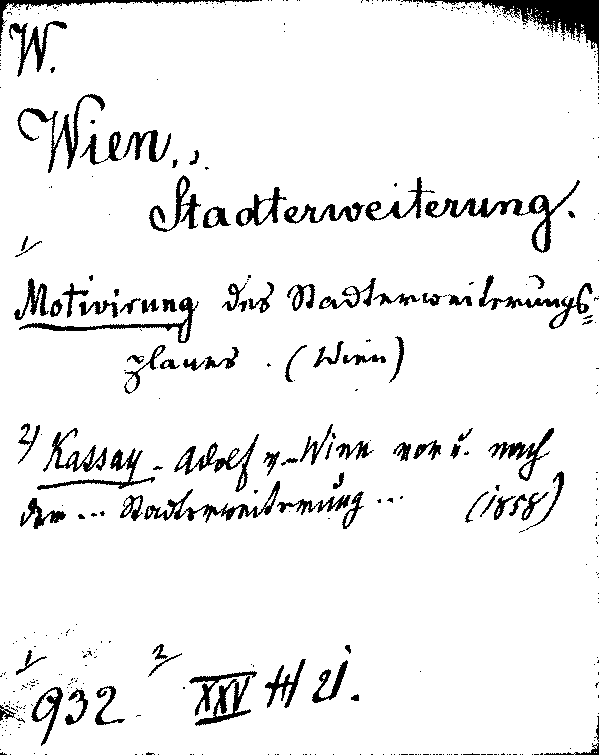 W.
Wien.,
Stadterweiterung.
1/
Motivirung des Stadterweiterungs=
planes. (Wien)
2/ Kassay - Adolf v - Wien vor u. nach
der ... Stadterweiterung ... (1858)
1/ 2/
932 XXV H 21.